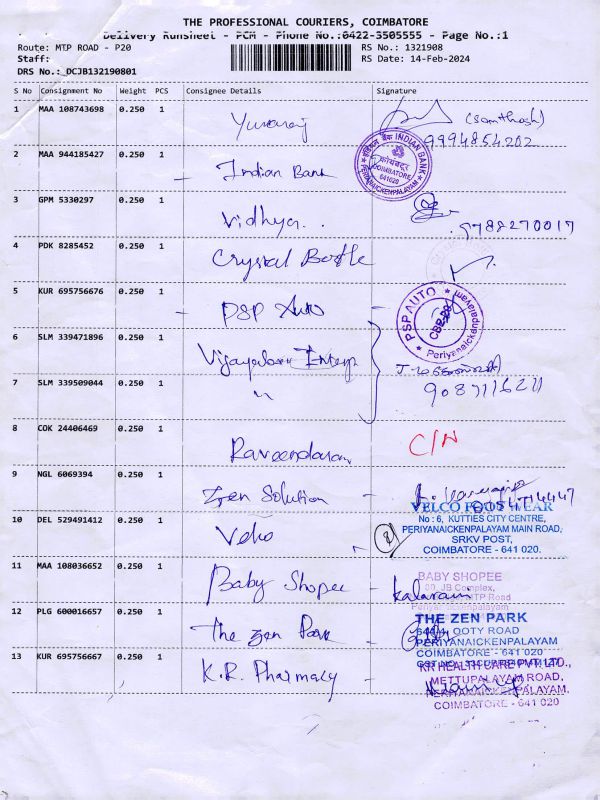 THE PROFESSIONAL COURIERS, COIMBATORE
Delivery Runsheet - PCM - Phone No.:0422-3505555 - Page No.:1
Route: MTP ROAD - P20 RS No.: 1321908
Staff: RS Date: 14-Feb-2024
DRS No.:_DCJB132190801
S No Consignment No Weight PCS Consignee Details Signature
1 MAA 108743698 0.250 1 Yuvaraj (Santhosh)
9994854202
2 MAA 944185427 0.250 1 Indian Bank
INDIAN BANK
COIMBATORE
641020
PERIYANAICKENPALAYAM
3 GPM 5330297 0.250 1 Vidhya..
9788270017
4 PDK 8285452 0.250 1 Crystal Bottle
5 KUR 695756676 0.250 1 PSP Auto
PSP AUTO
Periyanaickenpalayam
6 SLM 339471896 0.250 1
7 SLM 339509044 0.250 1 "
8 COK 24406469 0.250 1 Raveendaran C/N
9 NGL 6069394 0.250 1 Zen Solution
10 DEL 529491412 0.250 1 Velco
VELCO FOOT WEAR
No : 6, KUTTIES CITY CENTRE,
PERIYANAICKENPALAYAM MAIN ROAD,
SRKV POST,
COIMBATORE - 641 020.
11 MAA 108036652 0.250 1 Baby Shopee - kalarani
BABY SHOPEE
JB Complex,
MTP Road
Periyanaickenpalayam
12 PLG 600016657 0.250 1 The Zen Park
THE ZEN PARK
OOTY ROAD
PERIYANAICKENPALAYAM
COIMBATORE - 641 020
13 KUR 695756667 0.250 1 K.R. Pharmacy
KR HEALTH CARE PVT. LTD.,
METTUPALAYAM ROAD,
PERIYANAICKENPALAYAM,
COIMBATORE - 641 020